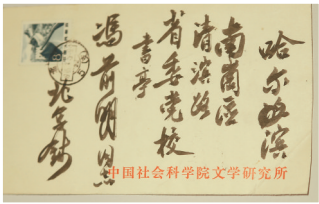 哈尔滨
南岗区
清滨路
省委党校
书亭
冯前明同志
北京钱
中国社会科学院文学研究所